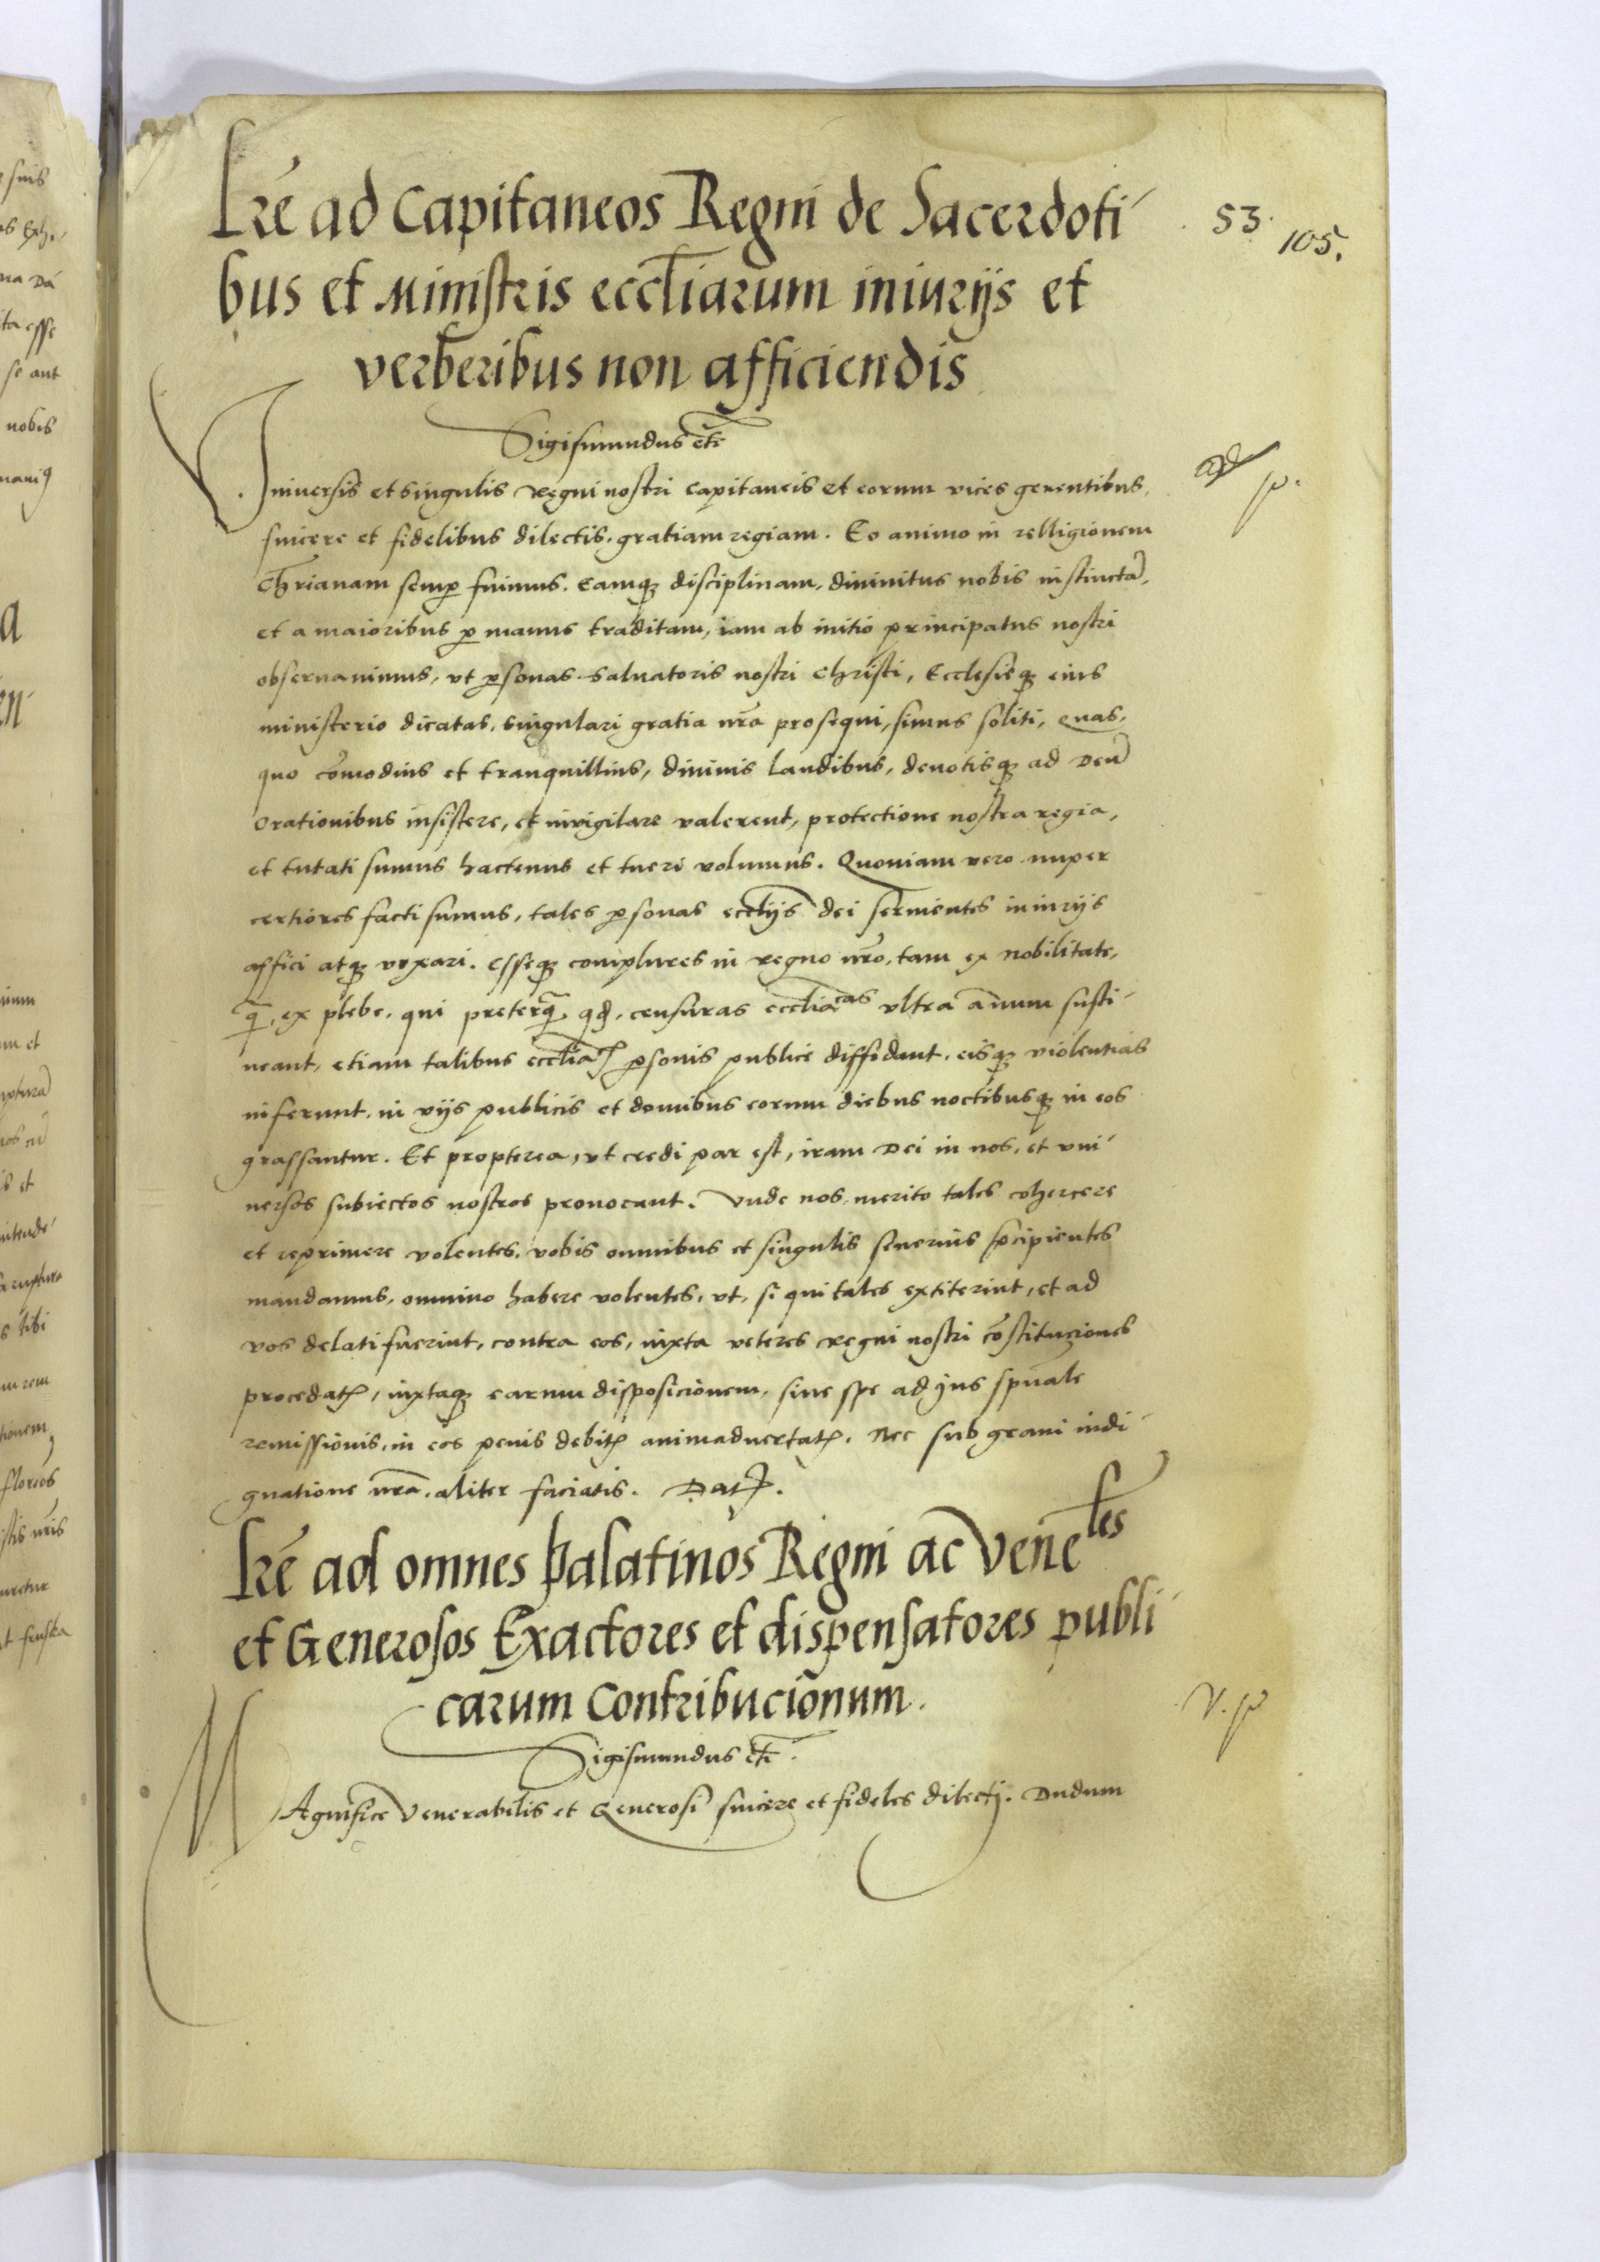 Lrē ad Capitaneos Regni de Sacerdoti-
53. 105.
bus et Ministris eccl̄iarum iniurijs et
verberibus non afficiendis
Sigismundus etc̄
Vniuersis et singulis regni nostri capitaneis et eorum vices gerentibus,
p.
sincere et fidelibus dilectis, gratiam regiam. Eo animo in relligionem
Ch̄rianam semp̱ fuimus, eamqȝ disciplinam, diuinitus nobis instinctā,
et a maioribus p̱ manus traditam, iam ab initio principatus nostri
obseruauimus, vt p̱sonas saluatoris nostri Christi, Ecclesieqȝ eius
ministerio dicatas, singulari gratia nr̄a prosequi, simus soliti, quas,
quo cōmodius et tranquillius, diuinis laudibus, deuotisqȝ ad Deū
orationibus insistere, et inuigilare valerent, protectione nostra regia,
et tutati sumus hactenus et tueri volumus. Quoniam vero nuper
certiores facti sumus, tales p̱sonas eccl̄ijs dei seruientes iniurijs
affici atqȝ vexari, esseqȝ complures in regno nr̄o, tam ex nobilitate,
q̄, ex plebe, qui preterq̄ qđ, censuras eccl̄iacas vltra annum susti-
neant, etiam talibus eccl̄iaꝝ p̱sonis publice diffidant, eisqȝ violentias
inferunt, in vijs publicis et domibus eorum diebus noctibusqȝ in eos
grassantur. Et propterea, vt credi par est, iram Dei in nos, et vni-
uersos subiectos nostros prouocant. Vnde nos merito tales cohercere
et reprimere volentes, vobis omnibus et singulis seuerius p̄cipientes
mandamus, omnino habere volentes, vt, si qui tales extiterint, et ad
vos delati fuerint, contra eos, iuxta veteres regni nostri cōstituciones
procedatꝭ, iuxtaqȝ earum disposicionem, sine spe ad jus sp̄uale
remissionis, in eos penis debitꝭ animaduertatꝭ. Nec sub graui indi-
gnatione nr̄a, aliter faciatis. Datꝭ.
Lrē ad omnes palatinos Regni ac Venēles
et Generosos Exactores et dispensatores publi-
carum Contribucionum.
V. p
Sigismundus etc̄.
MAgnifice Venerabilis et Generosi sincere et fideles dilectj. Dudum